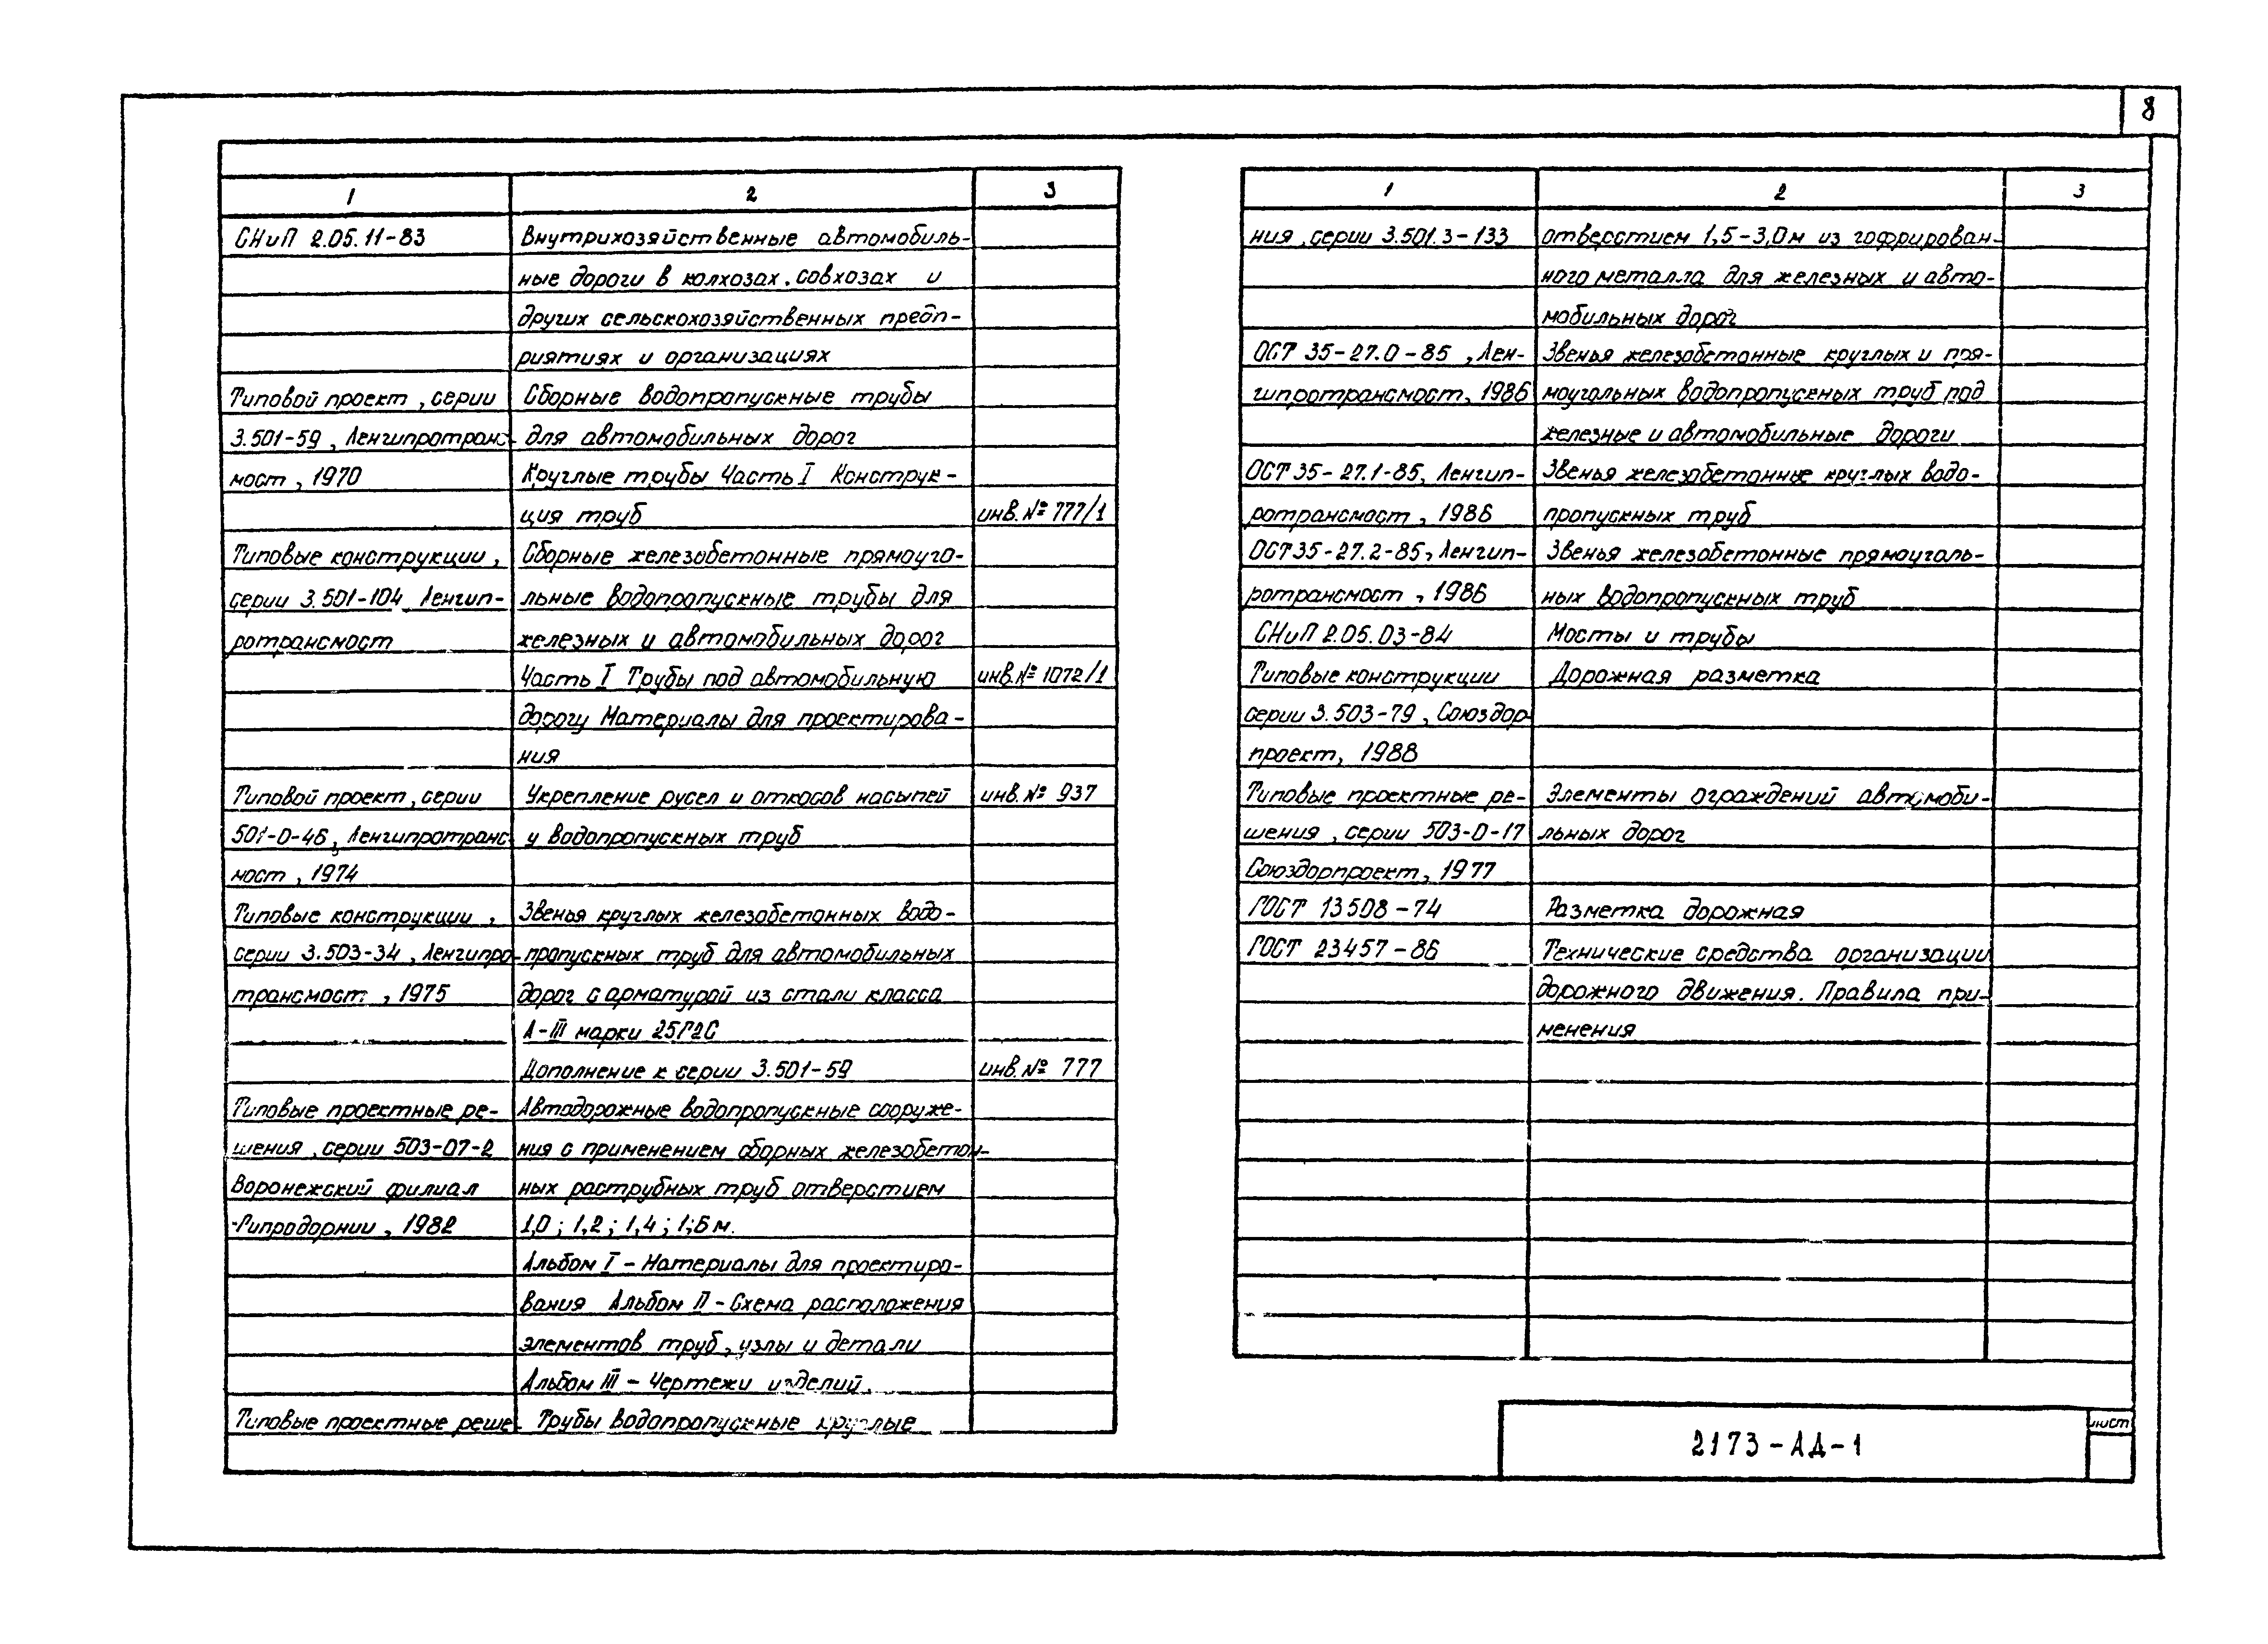 8
1 2 3
СНиП 2.05.11-83 Внутрихозяйственные автомобиль-
ные дороги в колхозах, совхозах и
других сельскохозяйственных предп-
риятиях и организациях
Типовой проект, серии Сборные водопропускные трубы
3.501-59, Ленгипротранс- для автомобильных дорог
мост, 1970 Круглые трубы Часть I Конструк-
ция труб инв. № 777/1
Типовые конструкции, Сборные железобетонные прямоуго-
серии 3.501-104 Ленгип- льные водопропускные трубы для
ротрансмост железных и автомобильных дорог
Часть I Трубы под автомобильную инв. № 1072/1
дорогу Материалы для проектирова-
ния
Типовой проект, серии Укрепление русел и откосов насыпей инв. № 937
501-0-46, Ленгипротранс- у водопропускных труб
мост, 1974
Типовые конструкции, Звенья круглых железобетонных водо-
серии 3.503-34, Ленгипро- пропускных труб для автомобильных
трансмост, 1975 дорог с арматурой из стали класса
А-III марки 25Г2С
Дополнение к серии 3.501-59 инв. № 777
Типовые проектные ре- Автодорожные водопропускные сооруже-
шения, серии 503-07-2 ния с применением сборных железобетон-
Воронежский филиал ных раструбных труб отверстием
Гипродорнии, 1982 1,0; 1,2; 1,4; 1,6 м.
Альбом I - Материалы для проектиро-
вания Альбом II - Схема расположения
элементов труб, узлы и детали
Альбом III - Чертежи изделий
Типовые проектные реше- Трубы водопропускные круглые
1 2 3
ния, серии 3.501.3-133 отверстием 1,5-3,0м из гофрирован-
ного металла для железных и авто-
мобильных дорог
ОСТ 35-27.0-85, Лен- Звенья железобетонные круглых и пря-
гипротрансмост, 1986 моугольных водопропускных труб под
железные и автомобильные дороги
ОСТ 35-27.1-85, Ленгип- Звенья железобетонные круглых водо-
ротрансмост, 1986 пропускных труб
ОСТ 35-27.2-85, Ленгип- Звенья железобетонные прямоуголь-
ротрансмост, 1986 ных водопропускных труб
СНиП 2.05.03-84 Мосты и трубы
Типовые конструкции Дорожная разметка
серии 3.503-79, Союздор-
проект, 1988
Типовые проектные ре- Элементы ограждений автомоби-
шения, серии 503-0-17 льных дорог
Союздорпроект, 1977
ГОСТ 13508-74 Разметка дорожная
ГОСТ 23457-86 Технические средства организации
дорожного движения. Правила при-
менения
2173-АД-1
лист